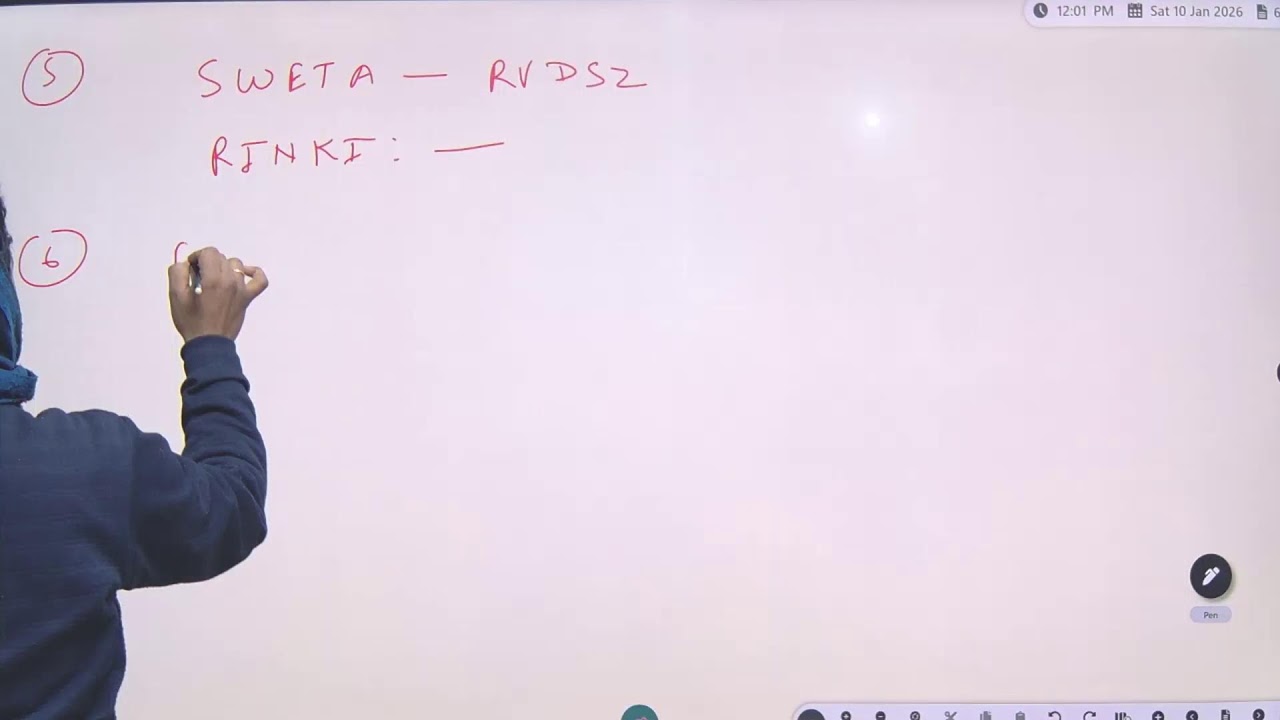 12:01 PM Sat 10 Jan 2026 6
5 SWETA — RVDSZ
RINKI : —
6
Pen